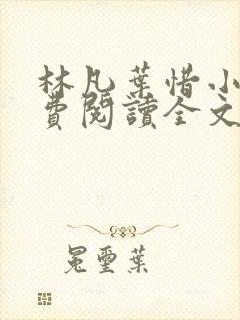 林凡葉惜小
費閱讀全文
冕璽葉